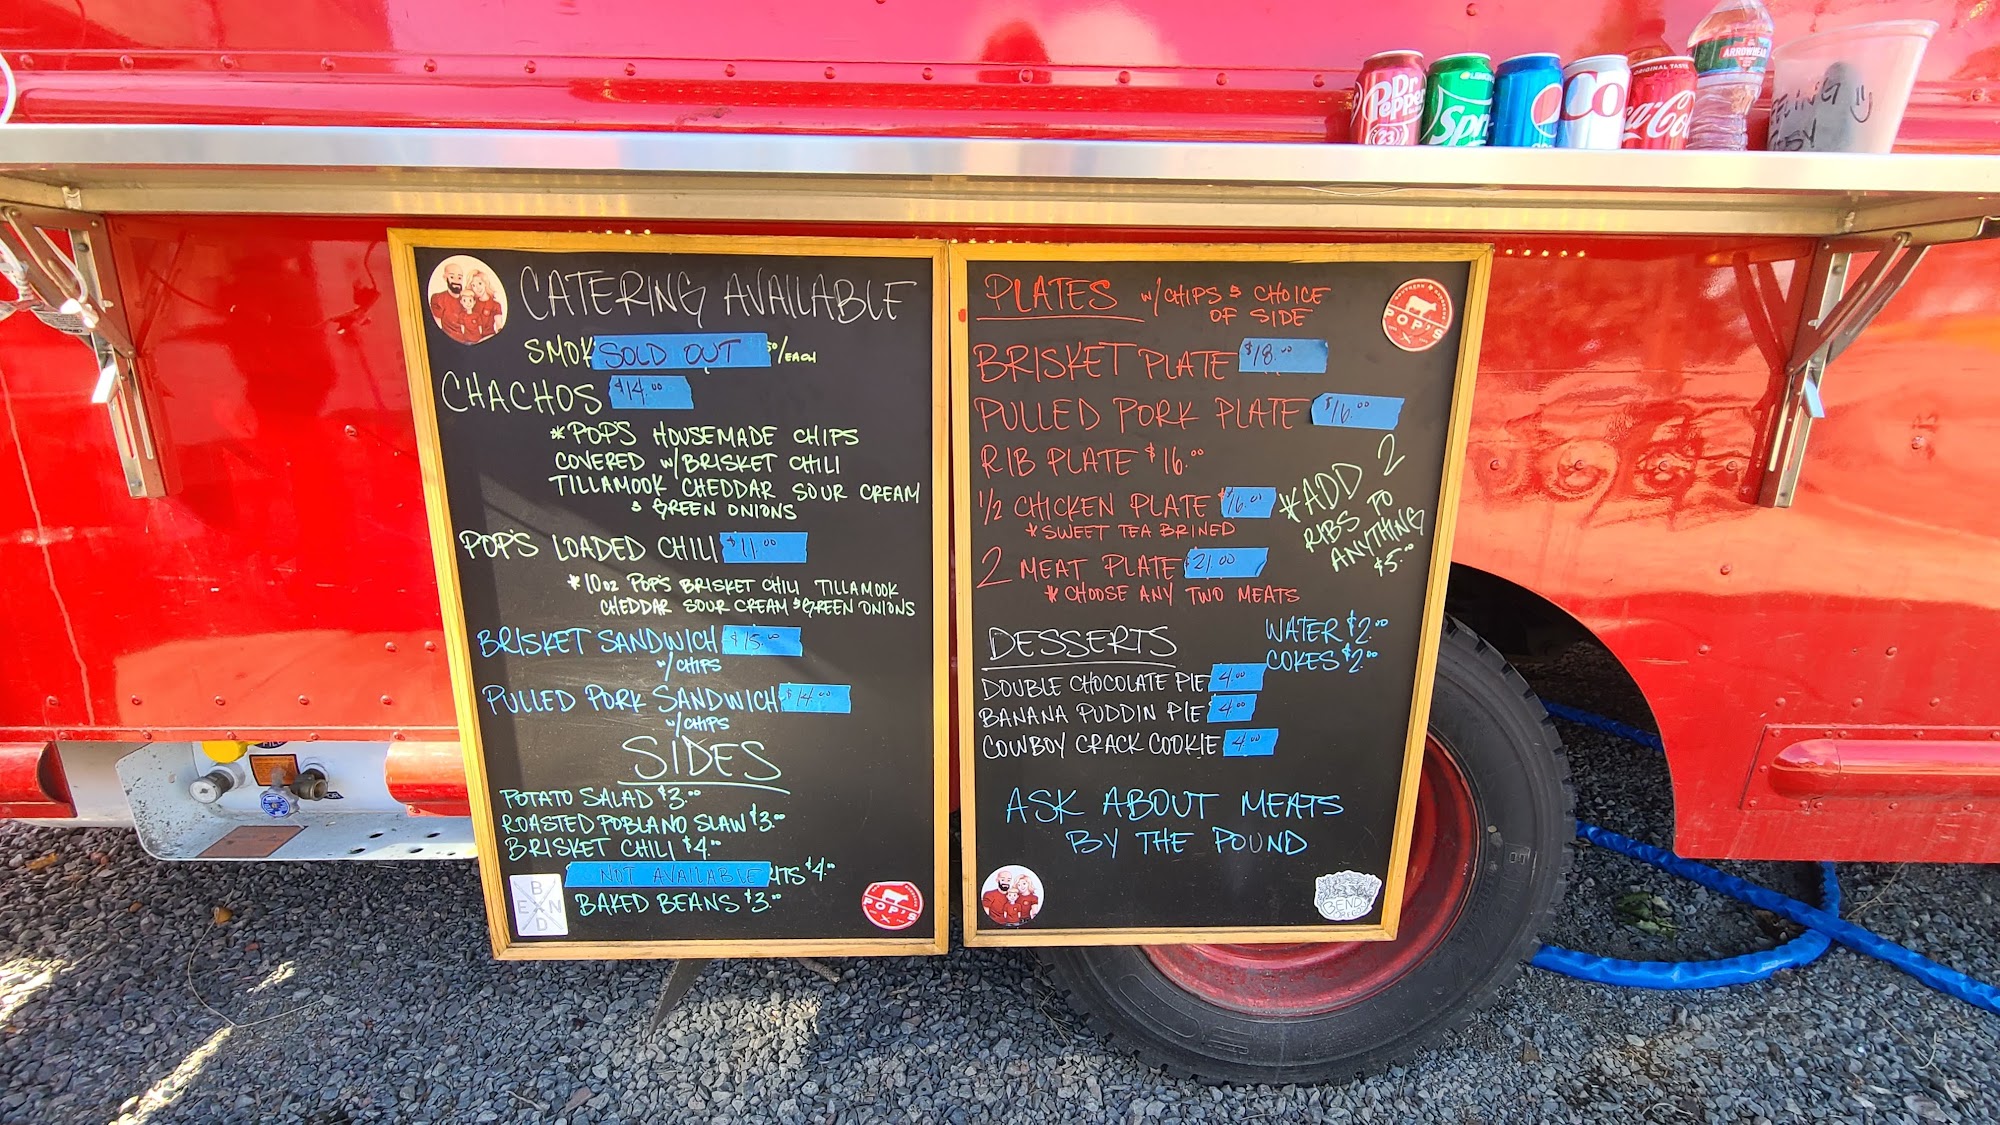 Dr Pepper
23
Spri
CO
ORIGINAL TASTE
Coca-Cola
ARROWHEAD
FEELING
CATERING AVAILABLE
SMOK SOLD OUT 50/EACH
CHACHOS $14.00
*POP'S HOUSEMADE CHIPS
COVERED W/BRISKET CHILI
TILLAMOOK CHEDDAR SOUR CREAM
& GREEN ONIONS
POP'S LOADED CHILI $11.00
*10oz POP'S BRISKET CHILI TILLAMOOK
CHEDDAR SOUR CREAM & GREEN ONIONS
BRISKET SANDWICH $15.00
W/CHIPS
PULLED PORK SANDWICH $14.00
W/CHIPS
SIDES
POTATO SALAD $3.00
ROASTED POBLANO SLAW $3.00
BRISKET CHILI $4.00
NOT AVAILABLE ITS $4.00
BAKED BEANS $3.00
B
E N
D
POP'S
PLATES W/CHIPS & CHOICE
OF SIDE
POP'S
BRISKET PLATE $18.00
PULLED PORK PLATE $16.00
RIB PLATE $16.00
1/2 CHICKEN PLATE $16.00
*SWEET TEA BRINED
2 MEAT PLATE $21.00
*CHOOSE ANY TWO MEATS
*ADD 2
RIBS TO
ANYTHING
$5.00
WATER $2.00
COKES $2.00
DESSERTS
DOUBLE CHOCOLATE PIE 4.00
BANANA PUDDIN PIE 4.00
COWBOY CRACK COOKIE 4.00
ASK ABOUT MEATS
BY THE POUND
BEND